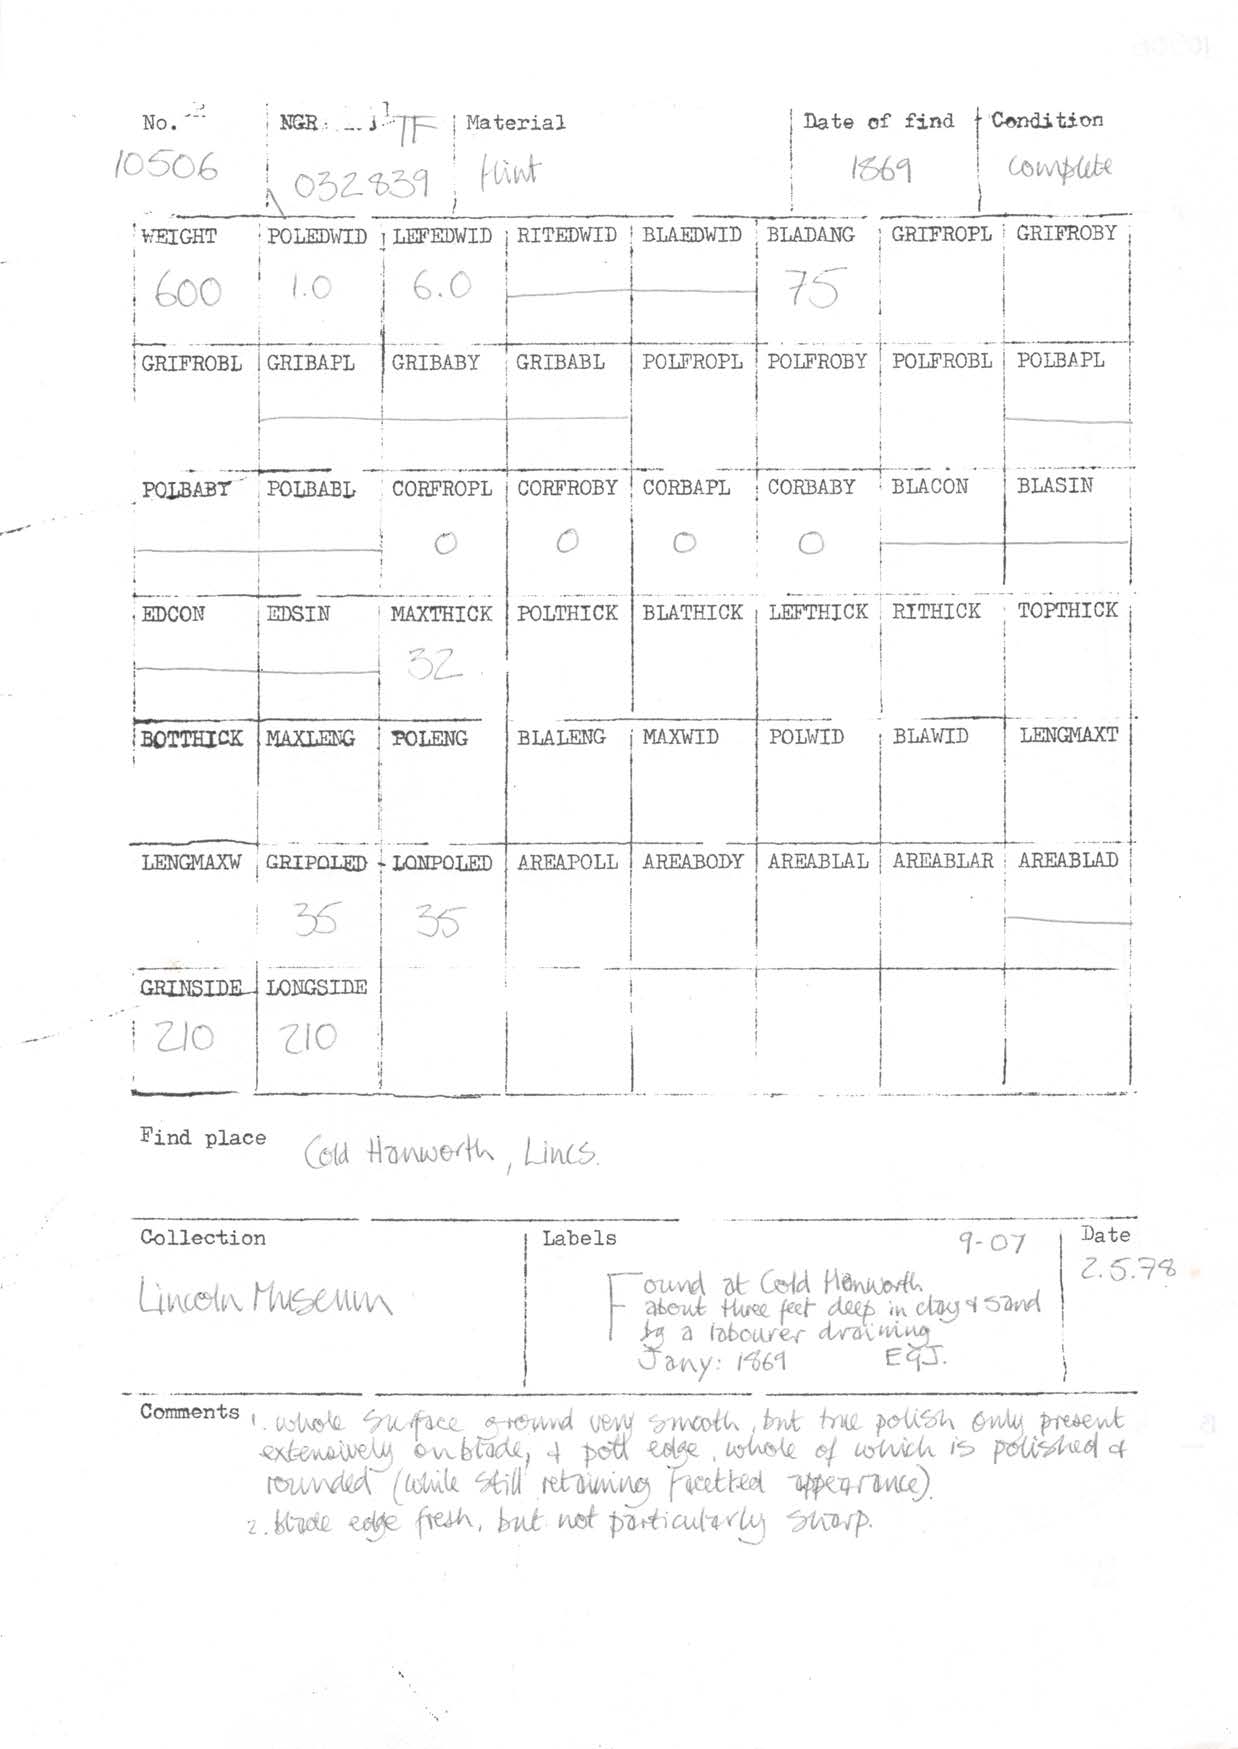 No. NGR TF Material Date of find Condition
10506 032839 flint 1869 complete
WEIGHT POLEDWID LEFEDWID RITEDWID BLAEDWID BLADANG GRIFROPL GRIFROBY
600 1.0 6.0 75
GRIFROBL GRIBAPL GRIBABY GRIBABL POLFROPL POLFROBY POLFROBL POLBAPL
POLBABY POLBABL CORFROPL CORFROBY CORBAPL CORBABY BLACON BLASIN
0 0 0 0
EDCON EDSIN MAXTHICK POLTHICK BLATHICK LEFTHICK RITHICK TOPTHICK
32
BOTTHICK MAXLENG POLENG BLALENG MAXWID POLWID BLAWID LENGMAXT
LENGMAXW GRIPOLED LONPOLED AREAPOLL AREABODY AREABLAL AREABLAR AREABLAD
35 35
GRINSIDE LONGSIDE
210 210
Find place Cold Hanworth, Lincs.
Collection Labels 9-07 Date
Lincoln Museum 2.5.78
Found at Cold Hanworth
about three feet deep in clay & sand
by a labourer draining
Jany: 1869 EGJ.
Comments 1. whole surface ground very smooth, but true polish only present
extensively on blade, & poll edge, whole of which is polished &
rounded (while still retaining facetted appearance).
2. blade edge fresh, but not particularly sharp.